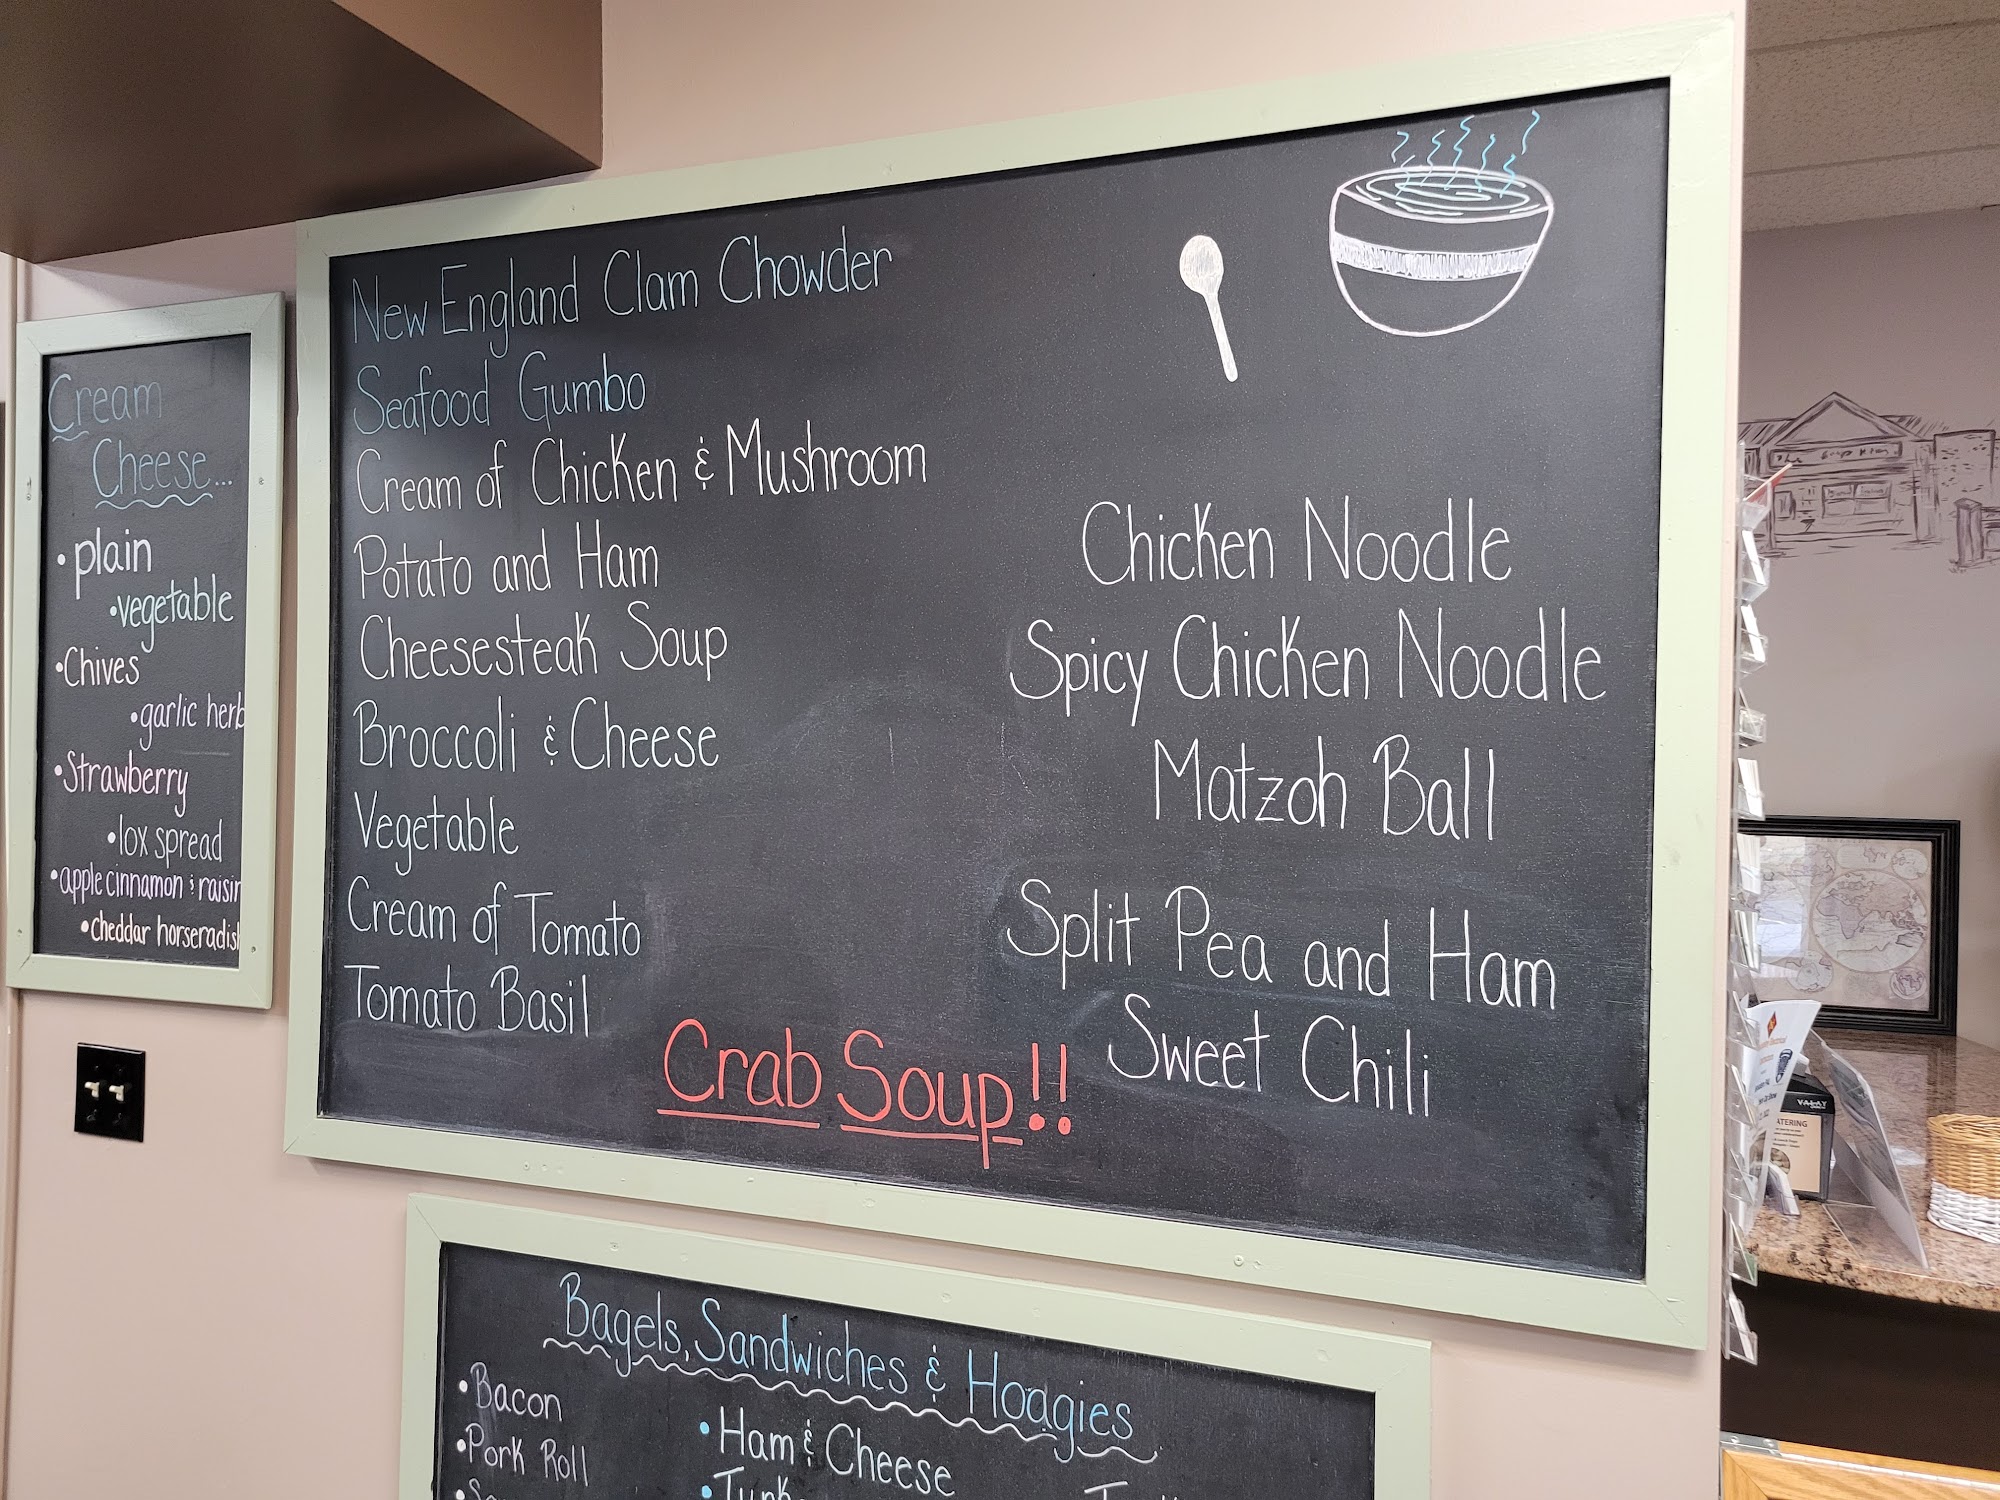 Cream
Cheese...
• plain
• vegetable
• Chives
• garlic herb
• Strawberry
• lox spread
• apple cinnamon & raisin
• cheddar horseradish
New England Clam Chowder
Seafood Gumbo
Cream of Chicken & Mushroom
Potato and Ham
Cheesesteak Soup
Broccoli & Cheese
Vegetable
Cream of Tomato
Tomato Basil
Crab Soup!!
Chicken Noodle
Spicy Chicken Noodle
Matzoh Ball
Split Pea and Ham
Sweet Chili
Bagels, Sandwiches & Hoagies
• Bacon
• Pork Roll
• Ham & Cheese